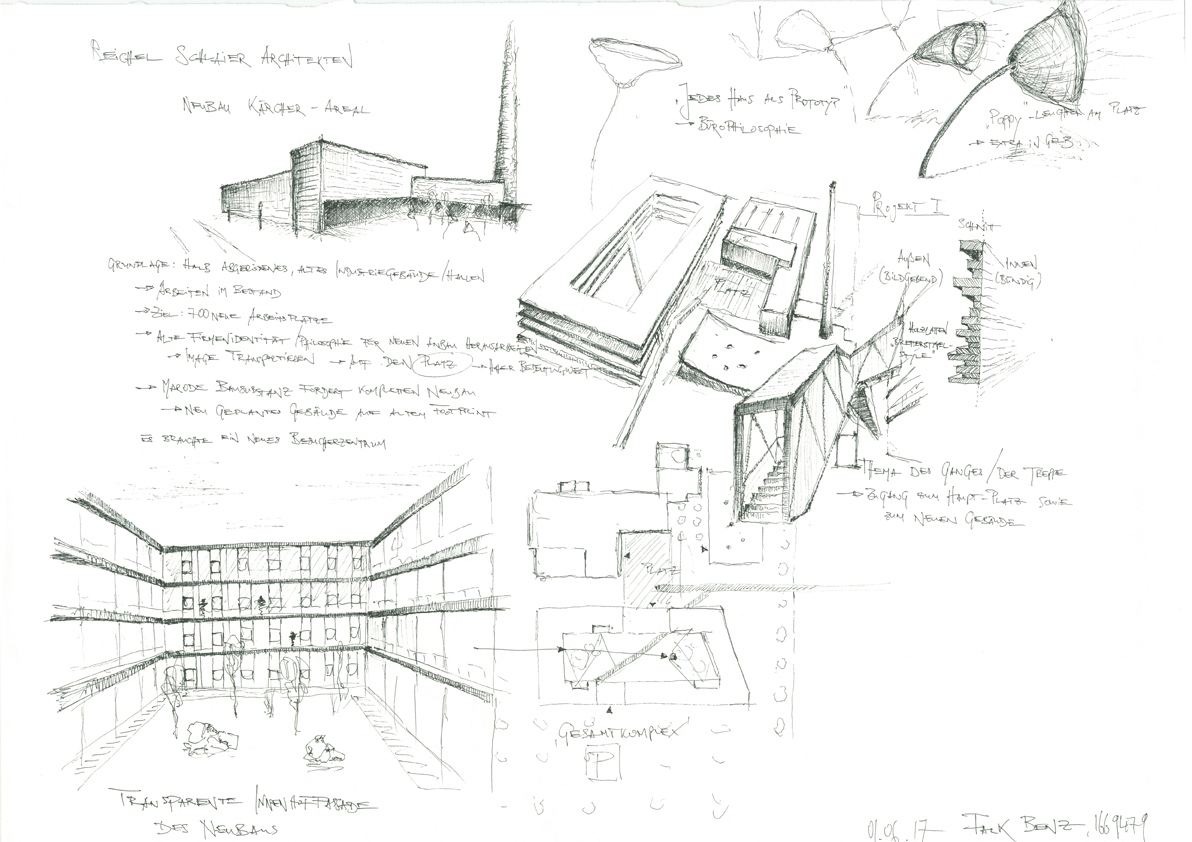 REICHEL SCHLAIER ARCHITEKTEN
NEUBAU KÄRCHER - AREAL
GRUNDLAGE: HALB ABGERISSENES, ALTES INDUSTRIEGEBÄUDE/HALLEN
→ ARBEITEN IM BESTAND
→ ZIEL: 700 NEUE ARBEITSPLÄTZE
→ ALTE FIRMENIDENTITÄT/PHILOSOPHIE FÜR NEUEN ANBAU HERAUSARBEITEN
→ IMAGE TRANSPORTIEREN → AUF DEM PLATZ
→ MARODE BAUSUBSTANZ FORDERT KOMPLETTEN NEUBAU
→ NEU GEPLANTE GEBÄUDE AUF ALTEM FOOTPRINT
ES BRAUCHTE EIN NEUES BESUCHERZENTRUM
TRANSPARENTE INNENHOFFASSADE
DES NEUBAUS
„JEDES HAUS ALS PROTOTYP"
→ BÜROPHILOSOPHIE
„POPPY" - LEUCHTEN AM PLATZ
→ EXTRA IN GELB
PROJEKT I
SCHNITT
AUßEN
(BILDGEBEND)
INNEN
(BÜNDIG)
HOLZLATTEN
"BRETTERSTAPEL-
STYLE"
PLATZ
THEMA DES GANGES/DER TREPPE
→ ZUGANG ZUM HAUPT-PLATZ SOWIE
ZUM NEUEN GEBÄUDE
PLATZ
„GESAMTKOMPLEX"
P
01.06.17 FALK BENZ, 1669479